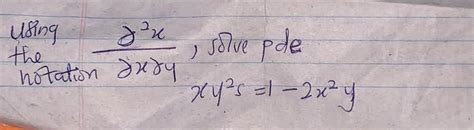 using the notation ∂²x/∂x∂y, solve pde
xy²s = 1 - 2x²y